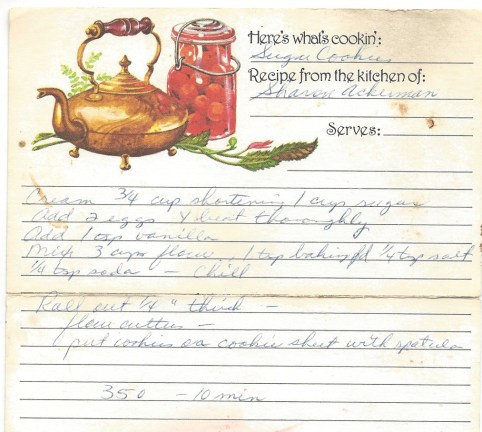 Here's what's cookin':
Sugar Cookies
Recipe from the kitchen of:
Sharon Ackerman
Serves:
Cream 3/4 cup shortening 1 cup sugar
Add 2 eggs & beat thoroughly
Add 1 tsp vanilla
Mix 3 cups flour, 1 tsp baking pd 1/4 tsp salt
1/4 tsp soda – Chill
Roll out 1/4" thick –
flour cutters –
put cookies on cookie sheet with spatula
350 – 10 min